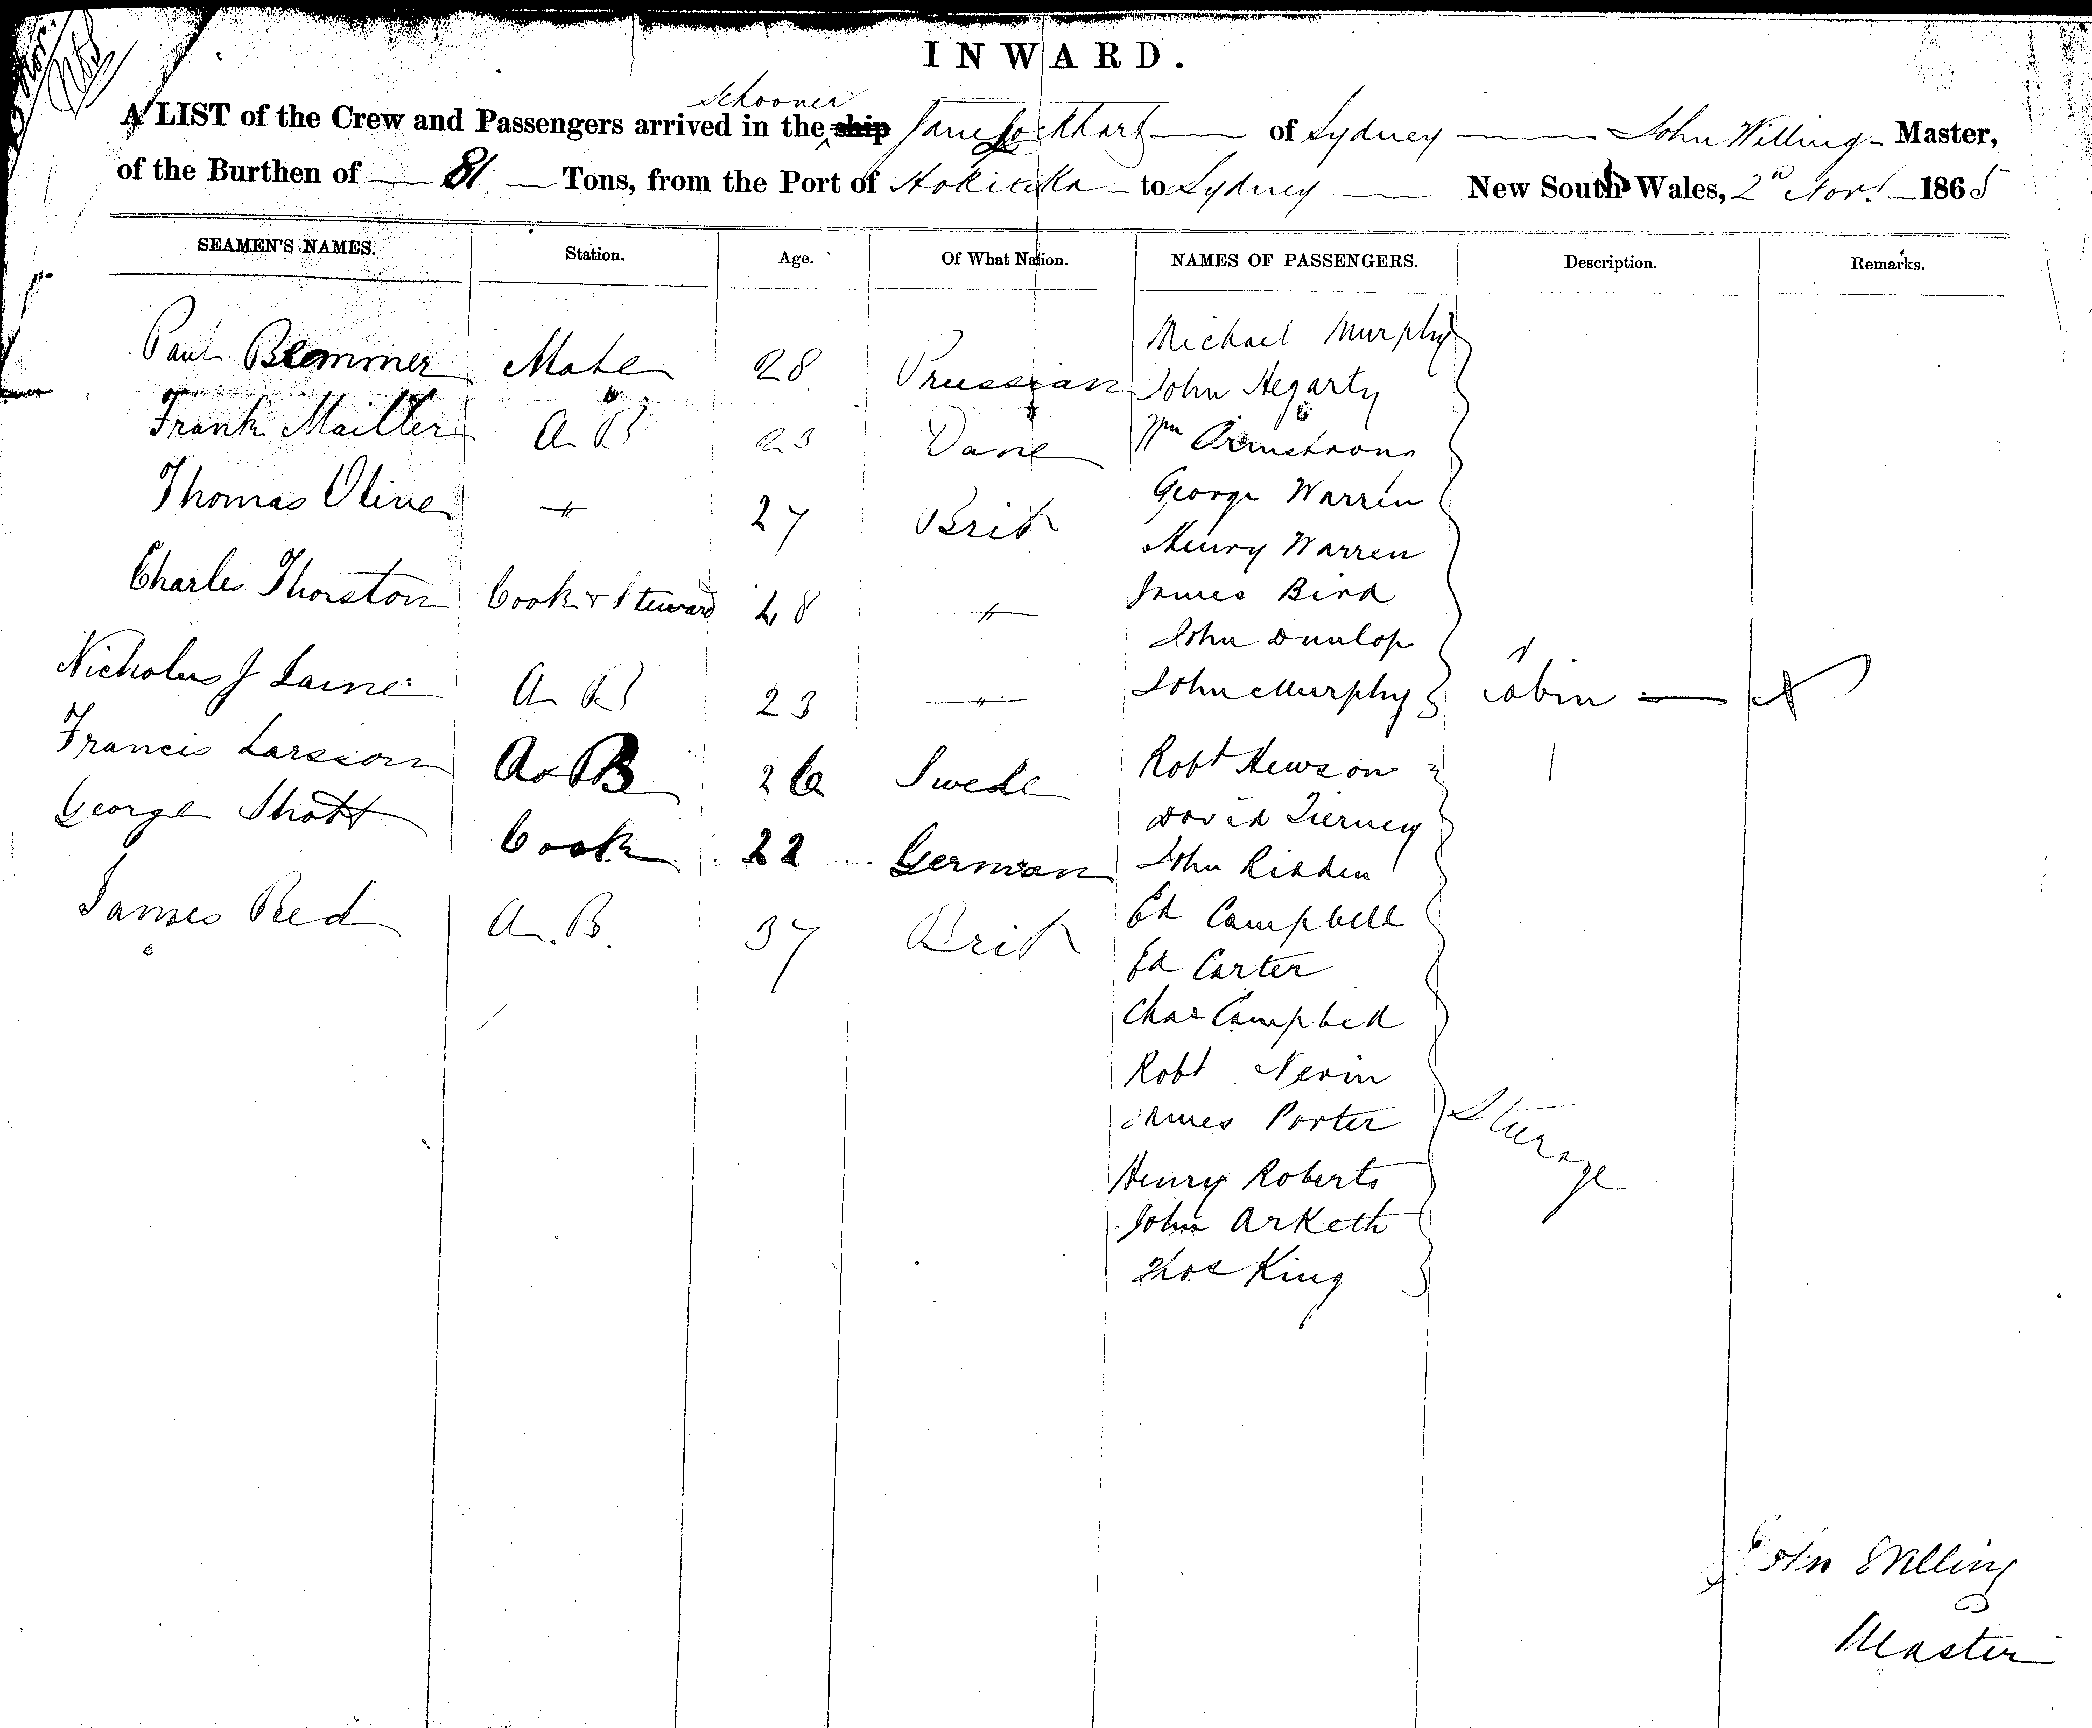 INWARD.
A LIST of the Crew and Passengers arrived in the ship schooner Jane Lockhart of Sydney John Willing Master,
of the Burthen of 81 Tons, from the Port of Hokitika to Sydney New South Wales, 2nd Novr 1865
SEAMEN'S NAMES. Station. Age. Of What Nation. NAMES OF PASSENGERS. Description. Remarks.
Paul Blemmer Mate 28 Prussian
Frank Mailler A B 23 Dane
Thomas Olive " 27 Brit
Charles Thorston Cook & Steward 28 "
Nicholas J Laine A B 23 "
Francis Larsson A B 26 Swede
George Shott Cook 22 German
James Reed A.B. 37 Brit
Michael Murphy
John Hegarty
Wm Armstrong
George Warren
Henry Warren
James Bird
John Dunlop
John Murphy Cabin
Robt Hewson
David Tierney
John Ridden
Ed Campbell
Ed Carter
Chas Campbell
Robt Nevin
James Porter Steerage
Henry Roberts
John Arketh
Thos King
John Willing
Master